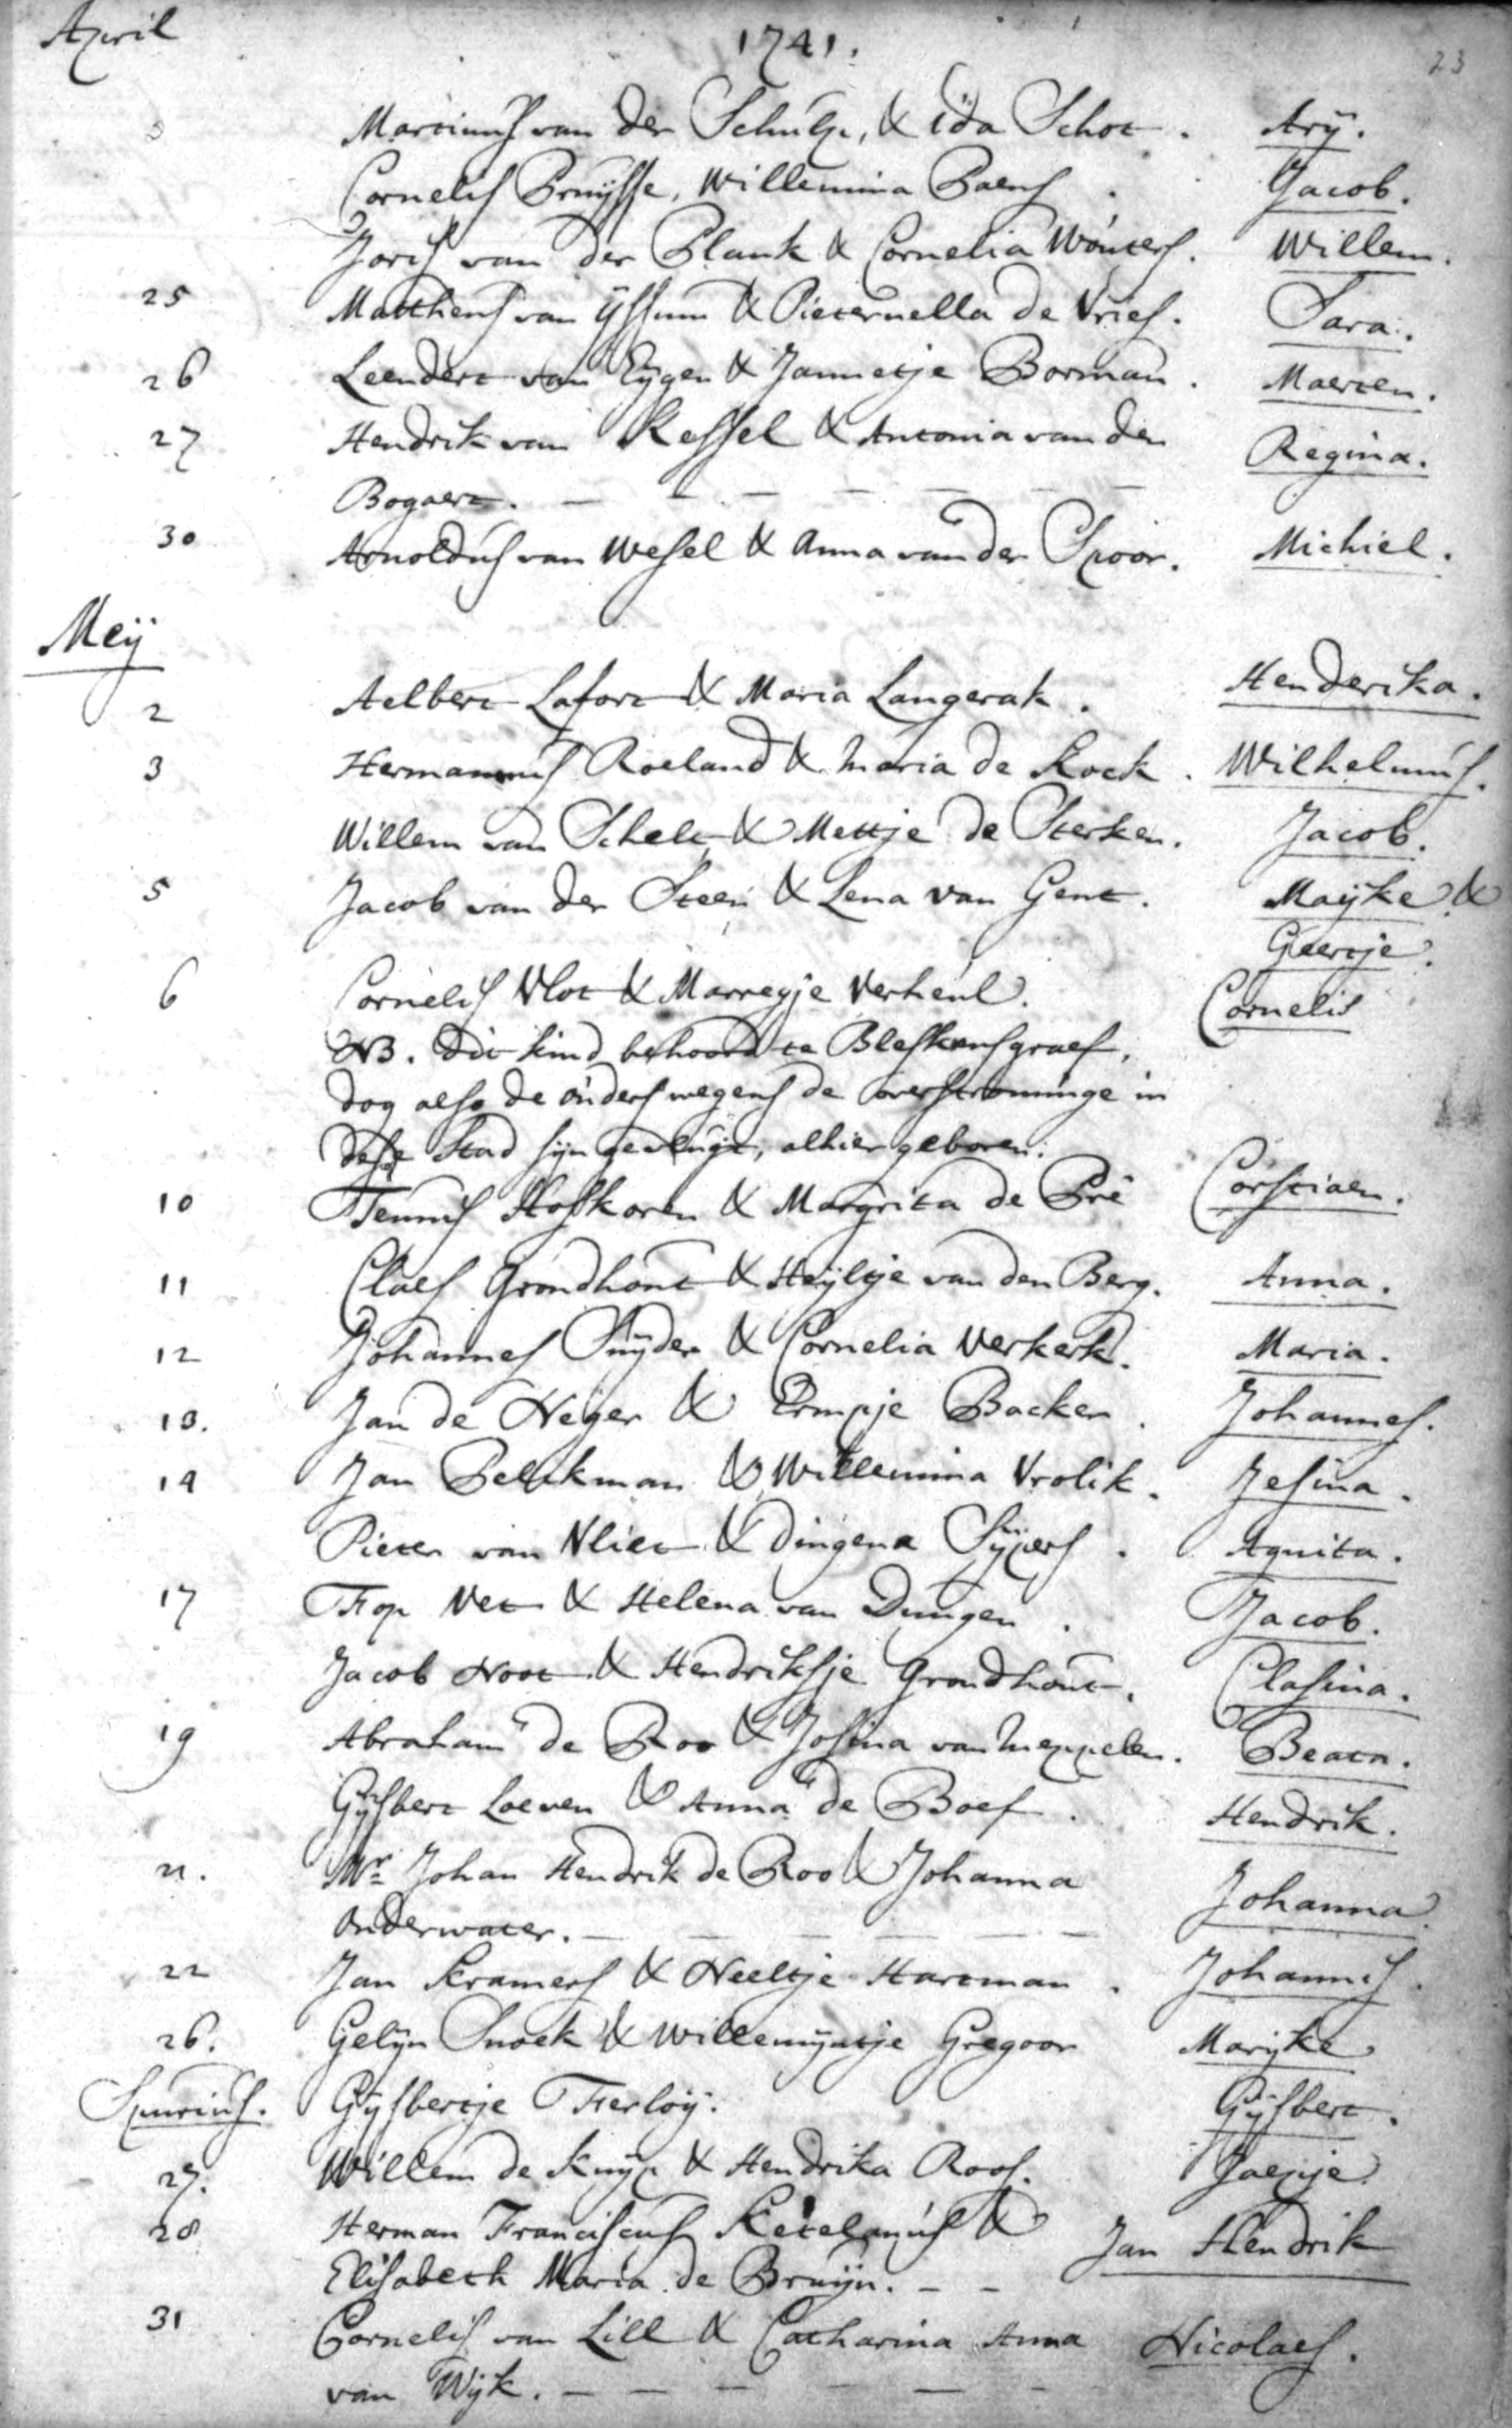 April 1741. 23
Martinus van der Schulp, & ida Schot. Arÿ.
Cornelis Pruijsse, Willemina Paens. Jacob.
Joris van der Plank & Cornelia Wouters. Willem.
25 Mattheus van ijssum & Pieternella de Vries. Sara.
26 Leendert van Eijgen & Jannetje Borman. Maerten.
27 Hendrik van Kessel & Antonia van den Regina.
Bogaert.
30 Arnoldus van Wesel & Anna van der Spoor. Michiel.
Meÿ
2 Aelbert Lafort & Maria Langerak. Henderika.
3 Hermannus Roeland & Maria de Kock. Wilhelmus.
Willem van Schelt & Mettje de Sterken. Jacob.
5 Jacob van der Steen & Lena van Gent. Maÿke &
Geertje.
6 Cornelis Vlot & Marregje Verheul. Cornelis
NB. dit kind behoord te Bleskensgraef,
dog also de ouders wegens de overstrominge in
dese Stad sijn gevlugt, alhier geboren.
10 Teunis Hofkoren & Margrita de Pré Corstiaen.
11 Claes Grondhout & Heijltje van den Berg. Anna.
12 Johannes Snijder & Cornelia Verkerk. Maria.
13. Jan de Neger & Ermpje Backer. Johannes.
14 Jan Pelikman & Willemina Vrolik. Jesina.
Pieter van Vliet & dingena Sijpers. Agnita.
17 Fop Vet & Helena van Dungen. Jacob.
Jacob Noot & Hendriksje Grondhout. Clasina.
19 Abraham de Roo & Josina van Meppelen. Beata.
Gijsbert Loeven & Anna de Boef. Hendrik.
21. Mr. Johan Hendrik de Roo & Johanna Johanna
Onderwater.
22 Jan Kramers & Neeltje Hartman. Johannis.
26. Gelijn Snoek & Willemijntje Gregoor Marijke
Spurius. Gijsbertje Ferloij. Gijsbert.
27. Willem de Kuijp & Hendrika Roos. Jaepje
28 Herman Franciscus Ketelanus & Jan Hendrik
Elisabeth Maria de Bruijn.
31 Cornelis van Lill & Catharina Anna Nicolaes.
van Wijk.